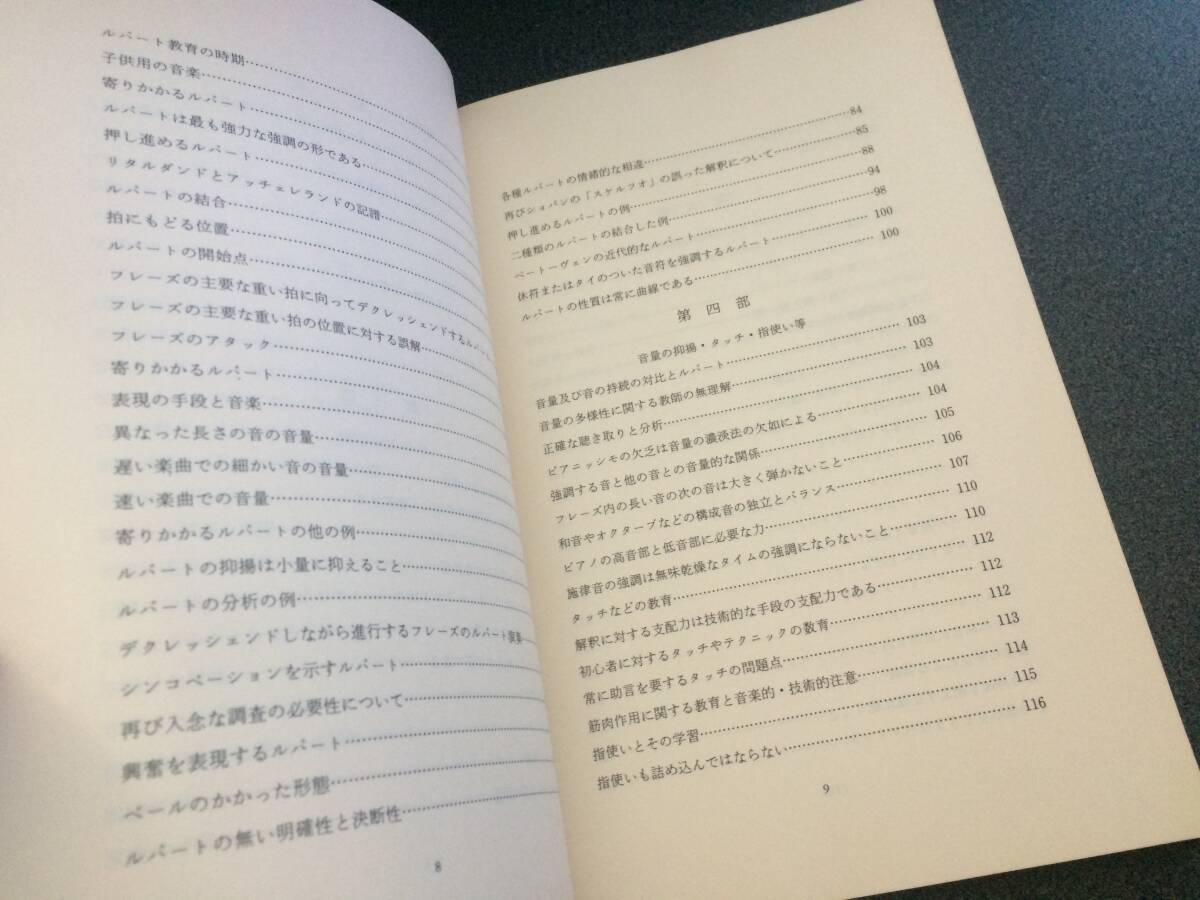 ルバート教育の時期……………
子供用の音楽……………
寄りかかるルバート……………
ルバートは最も強力な強調の形である……………
押し進めるルバート……………
リタルダンドとアッチェレランドの記譜……………
ルバートの結合……………
拍にもどる位置……………
ルバートの開始点……………
フレーズの主要な重い拍に向ってデクレッシェンドするルバート
フレーズの主要な重い拍の位置に対する誤解……………
フレーズのアタック……………
寄りかかるルバート……………
表現の手段と音楽……………
異なった長さの音の音量……………
遅い楽曲での細かい音の音量……………
速い楽曲での音量……………
寄りかかるルバートの他の例……………
ルバートの抑揚は小量に抑えること……………
ルバートの分析の例……………
デクレッシェンドしながら進行するフレーズのルバート
シンコペーションを示すルバート……………
再び入念な調査の必要性について……………
興奮を表現するルバート……………
ベールのかかった形態……………
ルバートの無い明確性と決断性……………
8
各種ルバートの情緒的な相違……………84
再びショパンの「スケルツオ」の誤った解釈について……………85
押し進めるルバートの例……………88
二種類のルバートの結合した例……………94
ベートーヴェンの近代的なルバート……………98
休符またはタイのついた音符を強調するルバート……………100
ルバートの性質は常に曲線である……………100
第四部
音量の抑揚・タッチ・指使い等
音量及び音の持続の対比とルバート……………103
音量の多様性に関する教師の無理解……………103
正確な聴き取りと分析……………104
ピアニッシモの欠乏は音量の濃淡法の欠如による……………104
強調する音と他の音との音量的な関係……………105
フレーズ内の長い音の次の音は大きく弾かないこと……………106
和音やオクターブなどの構成音の独立とバランス……………107
ピアノの高音部と低音部に必要な力……………110
施律音の強調は無味乾燥なタイムの強調にならないこと……………110
タッチなどの教育……………112
解釈に対する支配力は技術的な手段の支配力である……………112
初心者に対するタッチやテクニックの教育……………112
常に助言を要するタッチの問題点……………113
筋肉作用に関する教育と音楽的・技術的注意……………114
指使いとその学習……………115
指使いも詰め込んではならない……………116
9